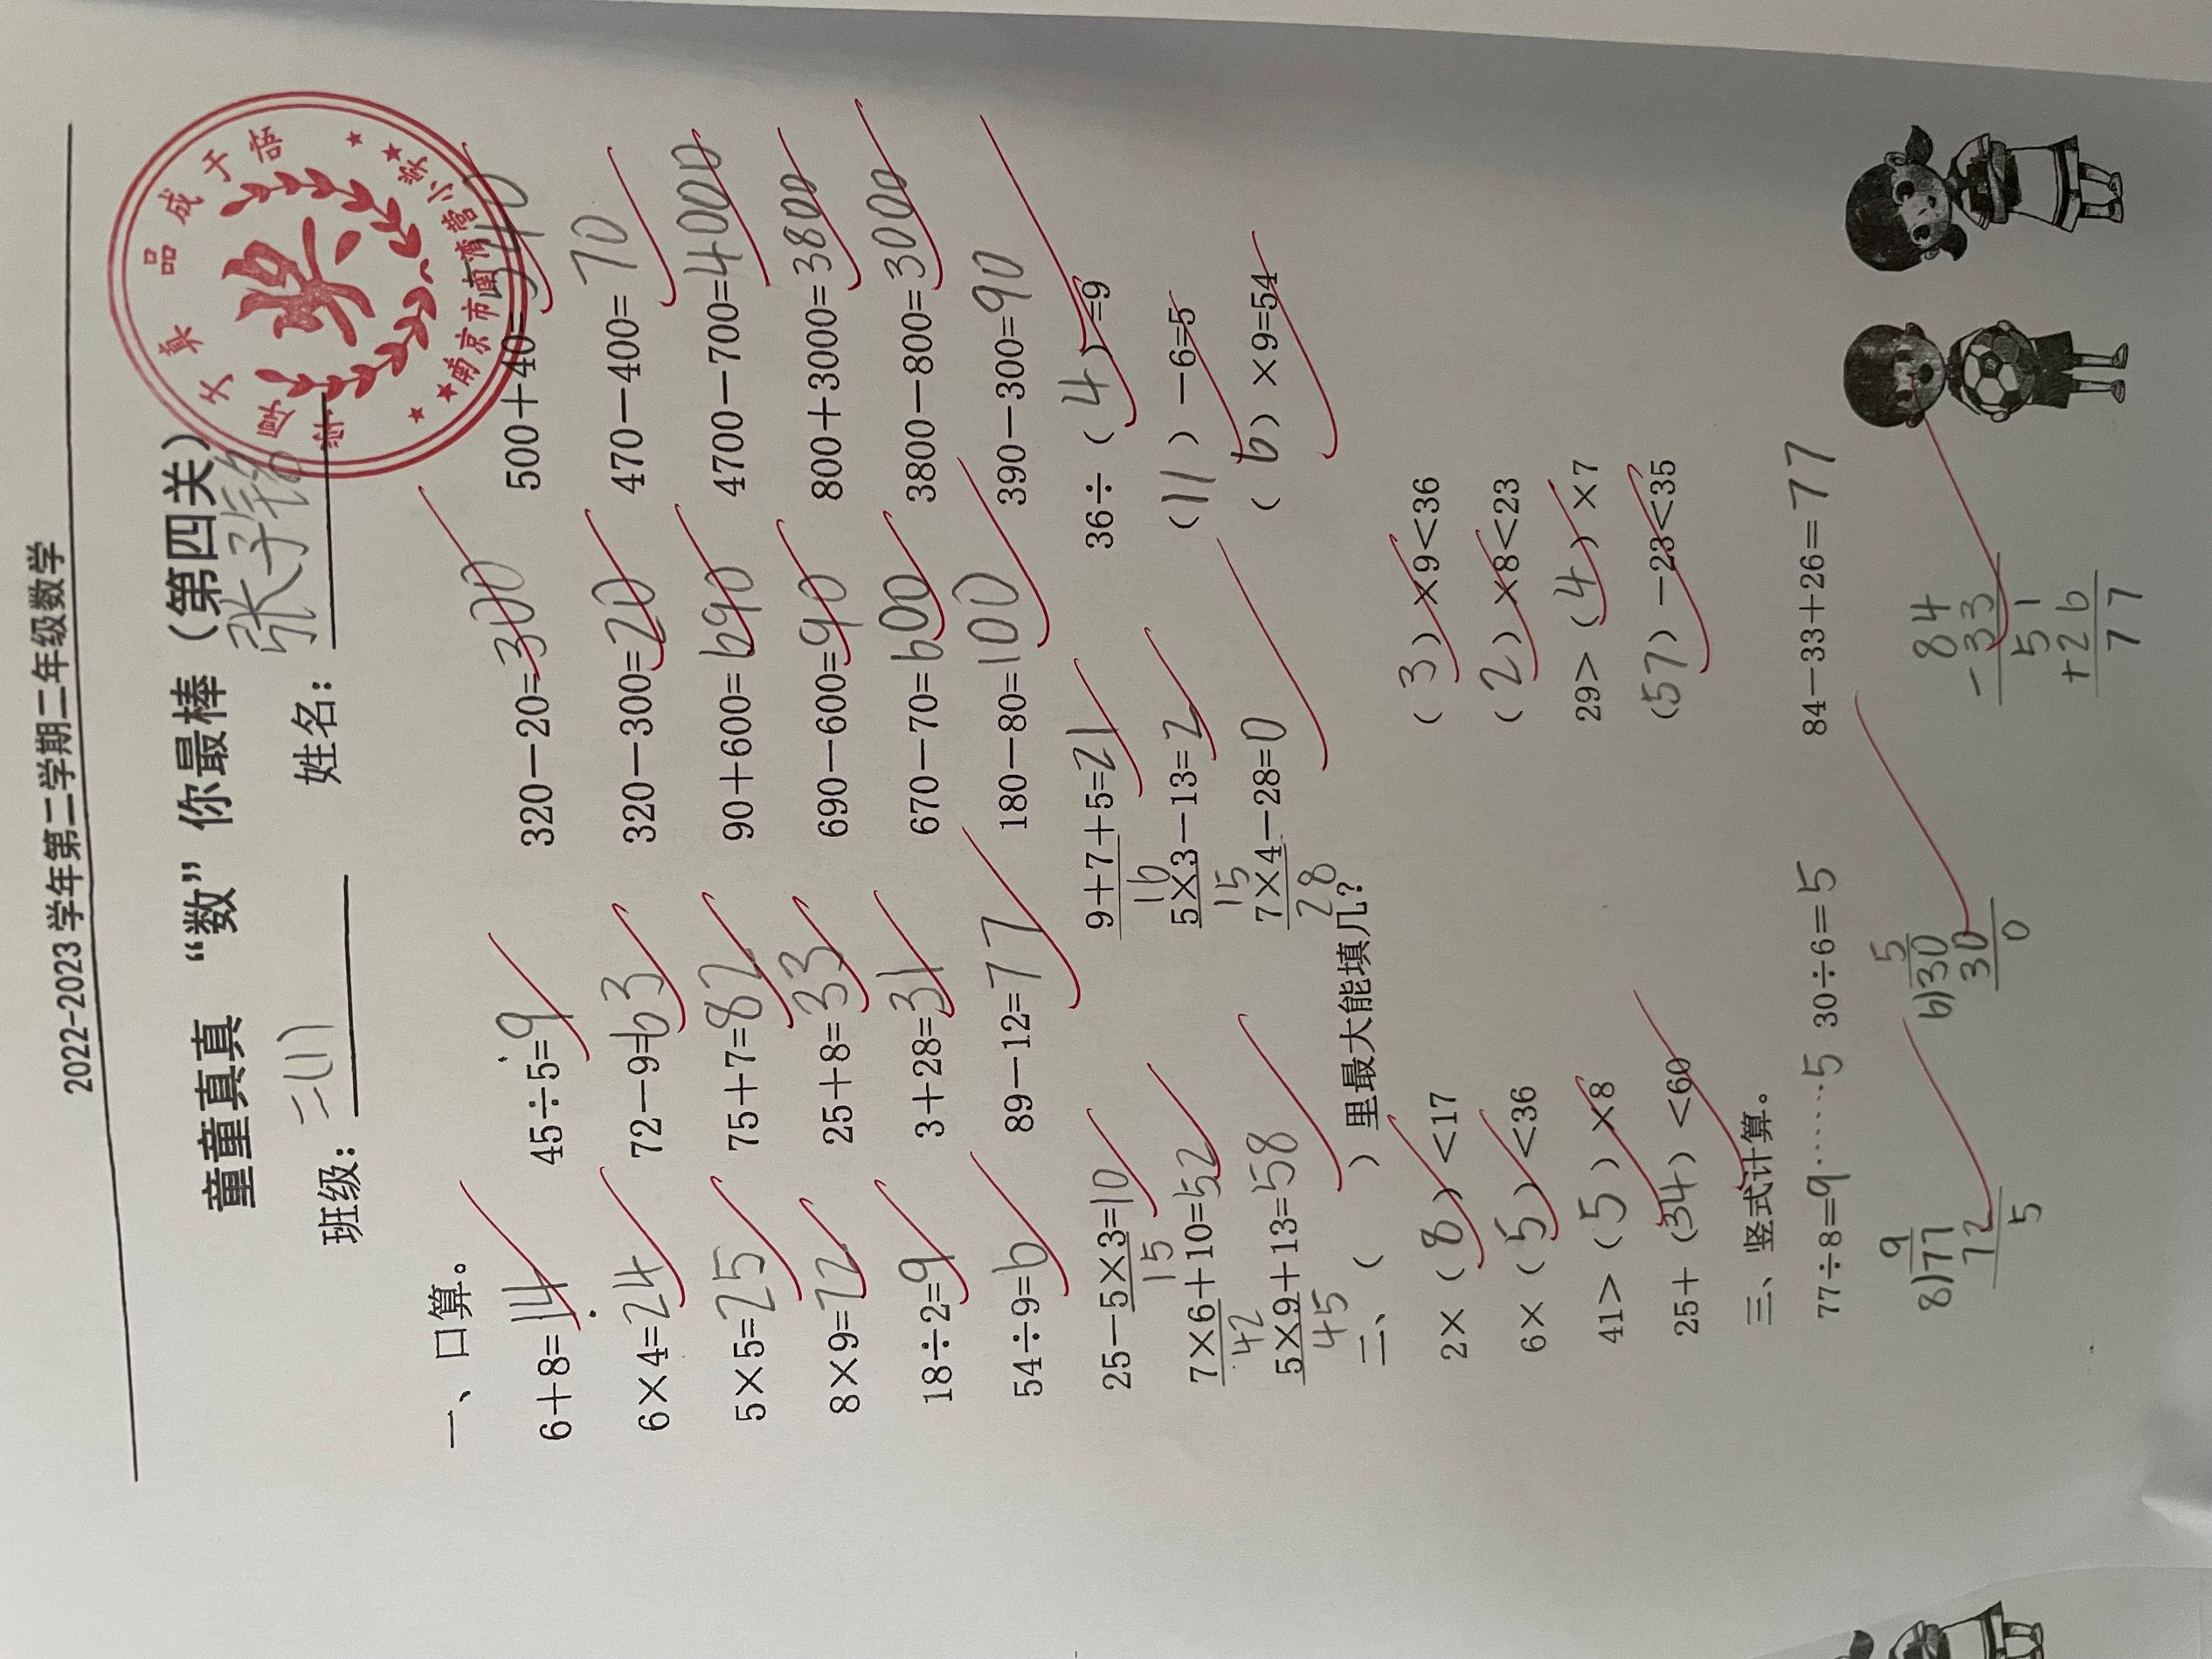 2022-2023 学年第二学期二年级数学
童童真真 “数”你最棒（第四关）
班级：二(1) 姓名：张子铭
学 少 真 品 成 于 悟
奖
南京市南湾营小学
一、口算。
6+8=14 45÷5=9 320-20=300 500+40=540
6×4=24 72-9=63 320-300=20 470-400=70
5×5=25 75+7=82 90+600=690 4700-700=4000
8×9=72 25+8=33 690-600=90 800+3000=3800
18÷2=9 3+28=31 670-70=600 3800-800=3000
54÷9=6 89-12=77 180-80=100 390-300=90
25-5×3=10 9+7+5=21 36÷(4)=9
15 16
7×6+10=52 5×3-13=2 (11)-6=5
42 15
5×9+13=58 7×4-28=0 (6)×9=54
45 28
二、（ ）里最大能填几?
2×(8)<17 (3)×9<36
6×(5)<36 (2)×8<23
41>(5)×8 29>(4)×7
25+(34)<60 (57)-23<35
三、竖式计算。
77÷8=9……5 30÷6=5 84-33+26=77
9 5 84
8)77 6)30 -33
72 30 51
5 0 +26
77